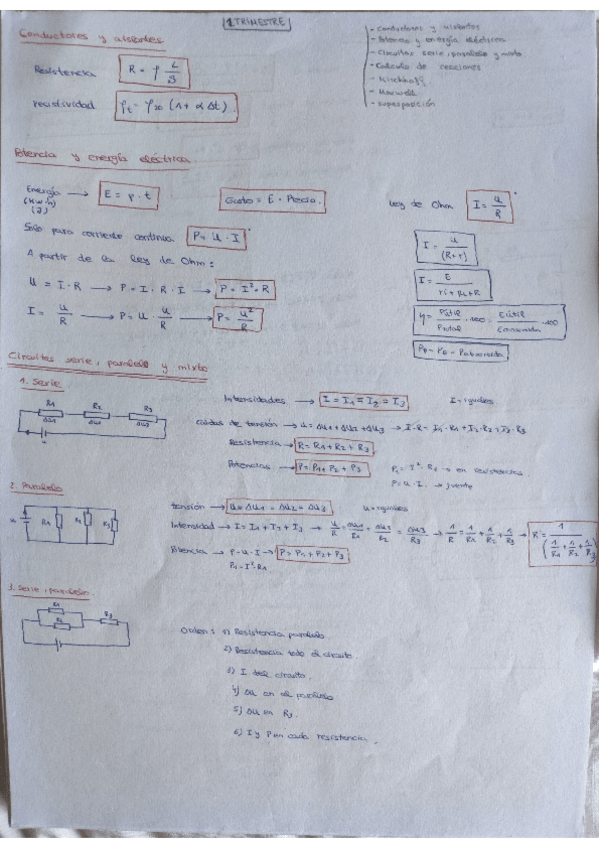 1 TRIMESTRE
- Conductores y aislantes
- Potencia y energía eléctrica
- Circuitos serie, paralelo y mixto
- Calculo de reacciones
- Kirchhoff
- Maxwell
- superposición
Conductores y aislantes
Resistencia R = ρ L/S
resistividad ρt = ρ20 (1 + α Δt).
Potencia y energía eléctrica
Energía (KW·h) (J) → E = p · t
Gasto = E · Precio.
Ley de Ohm I = u/R
Solo para corriente continua P = u · I
A partir de la ley de Ohm:
U = I · R → P = I · R · I → P = I² · R
I = u/R → P = u · u/R → P = u²/R
I = u/(R+r)
I = E/(ri + RL + R)
η = Pútil/Ptotal · 100 = Eútil/Econsumida · 100
Circuitos serie, paralelo y mixto
1. Serie
R1 R2 R3
Δu1 Δu2 Δu3
Intensidades → I = I1 = I2 = I3 I = iguales
caídas de tensión → u = Δu1 + Δu2 + Δu3 → I·R = I1·R1 + I2·R2 + I3·R3
Resistencia → R = R1 + R2 + R3
Potencias → P = P1 + P2 + P3 P1 = I² · R1 → en resistencias
P = u · I → fuente
2. Paralelo
u R1 R2 R3
tensión → u = Δu1 = Δu2 = Δu3 u = iguales
Intensidad → I = I1 + I2 + I3 → u/R = Δu1/R1 + Δu2/R2 + Δu3/R3 → 1/R = 1/R1 + 1/R2 + 1/R3 → R = 1/(1/R1 + 1/R2 + 1/R3
Potencia → P = u · I → P = P1 + P2 + P3
P1 = I² · R1
3. Serie, paralelo
R1 R2 R3
Orden: 1) Resistencia paralelo
2) Resistencia todo el circuito.
3) I todo circuito.
4) Δu en el paralelo
5) Δu en R3.
6) I y P en cada resistencia.